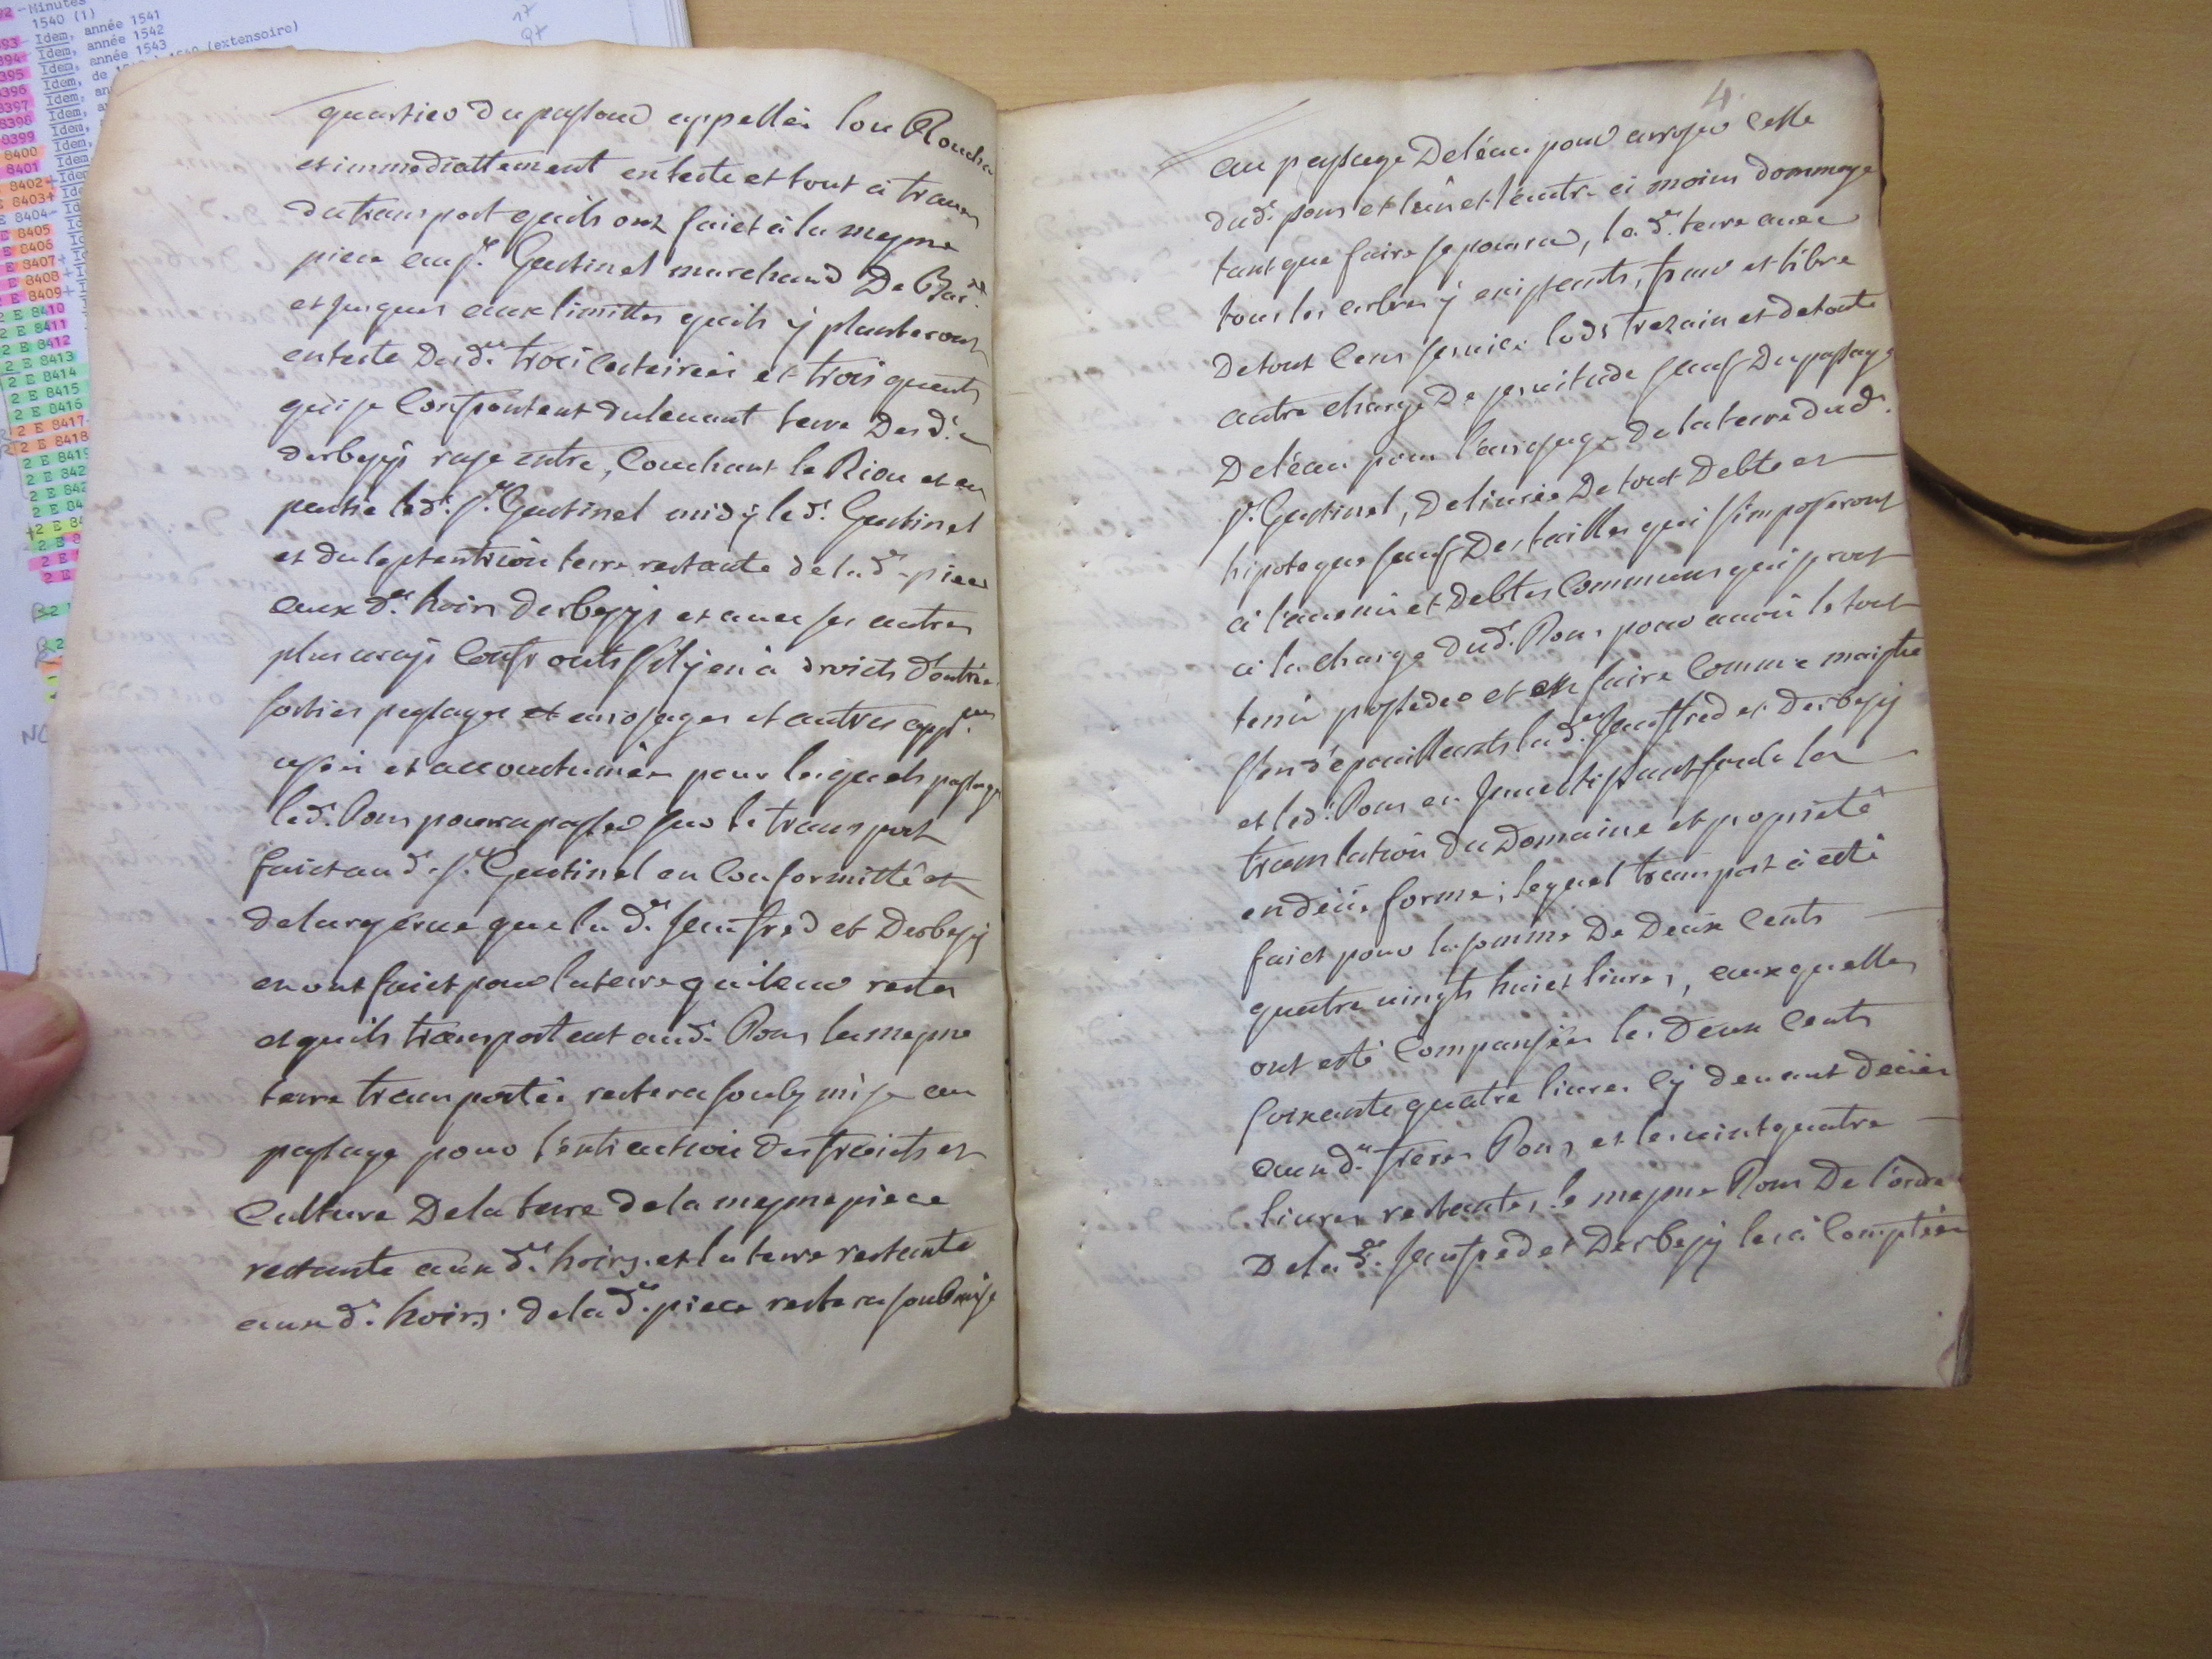 92 - Minutes
1540 (1)
393 - Idem, année 1541
394 - Idem, année 1542
395 Idem, année 1543
8396 Idem, de (extensoire)
8397 Idem, an
8398 Idem,
8399 Idem,
8400 Idem,
8401 Idem
8402 - Idem
E 8403+ Id
E 8404- Id
E 8405
E 8406
E 8407+
E 8408+
E 8409+
2 E 8410
2 E 8411
2 E 8412
2 E 8413
2 E 8414
2 E 8415
2 E 8416
2 E 8417
2 E 8418
2 E 8419
17
97
quartier du passaud appellée lou Rouchas
et immediattement en teste et tout à trauers
du transport quils ont faict à la mesme
piece au sr. Gastinel marchand De Bar
et jusques aux limittes quils ÿ planteront
enteste Desd.es trois cesteirées et trois quarts
qui se Confrontent du leuant terre Desd.s
derbesÿs rase entre, Couchant le Riou et en
partie led. sr. Gastinel midÿ led. Gastinel
et du septentrion terre restante de lad.e piece
aux d.s hoirs Desbesÿs et auec ses autres
plus uraÿs Confronts s'il ÿ en à droicts d'entrée
sorties passages et arrosages et autres app.ces
usés et accoutumées pour lesquels passages
led. Pons pourra passer sur le transport
faict aud. sr. Gastinel en Conformitté et
de la reserue que la d.e Jaufred et Desbesÿ
en ont faict pour la terre qui leur reste
et quils transportent aud. Pons la mesme
terre transportée restera soubz mise au
passage pour l'extraction des fruicts et
Culture Dela terre de la mesme piece
restante aux d.s hoirs. et la terre restante
aux d.s hoirs. de la d.e piece restera soubmise
4.
au passage De léau pour arroser Celle
dud. pons et lun et l'autre à moins dommage
tant que faire se pourra, la d.e terre auec
tous les arbres ÿ existants, franc et libre
De tout Cens seruice lods trezain et de toute
autre charge De seruitude sauf Du passage
De léau pour l'arrosage De la terre dud.
sr. Gastinel, Deliurée De tout Debte et
hipoteque sauf Des tailles qui s'imposeront
à l'auenir et Debtes Communs qui seront
à la charge Dud. Pons pour auoir le tout
tenir posseder et en faire Comme maistre
s'en dépouillants lad.e Jauffred et Desbesÿ
et led. Pons en Jnuestissant soubs la
translation du Domaine et proprieté
en deüe forme; lequel transport à esté
faict pour la somme De Deux Cents
quatre uingts huict liures, auxquelles
ont esté Compansées les Deux Cents
soixante quatre liures Cÿ deuant Deües
aux d.s freres Pons et les uint quatre
liures restantes le mesme Pons De l'ordre
De la d.e Jaufred et Desbesÿ les à Comptées